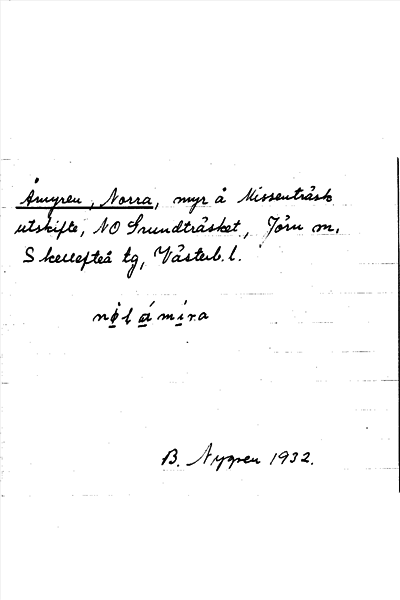 Åmyren, Norra, myr å Missenträsk
utskifte, NO Grundträsket, Jörn m.
Skellefteå tg, Västerb. l.
B. Nygren 1932.